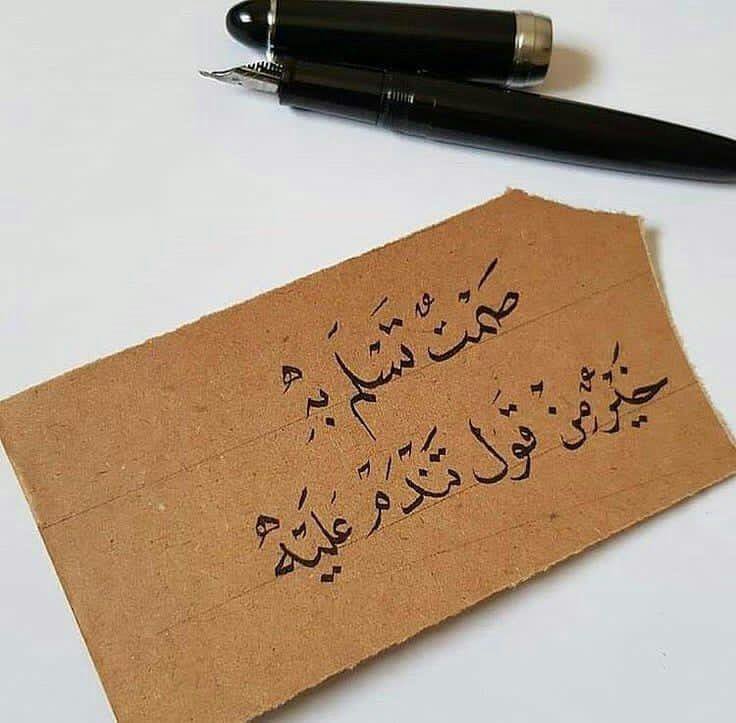 صَمْتٌ تَسْلَمَ بِهِ
خَيْرٌ مِنْ قَوَل تَنْدَمَ عَلَيْه